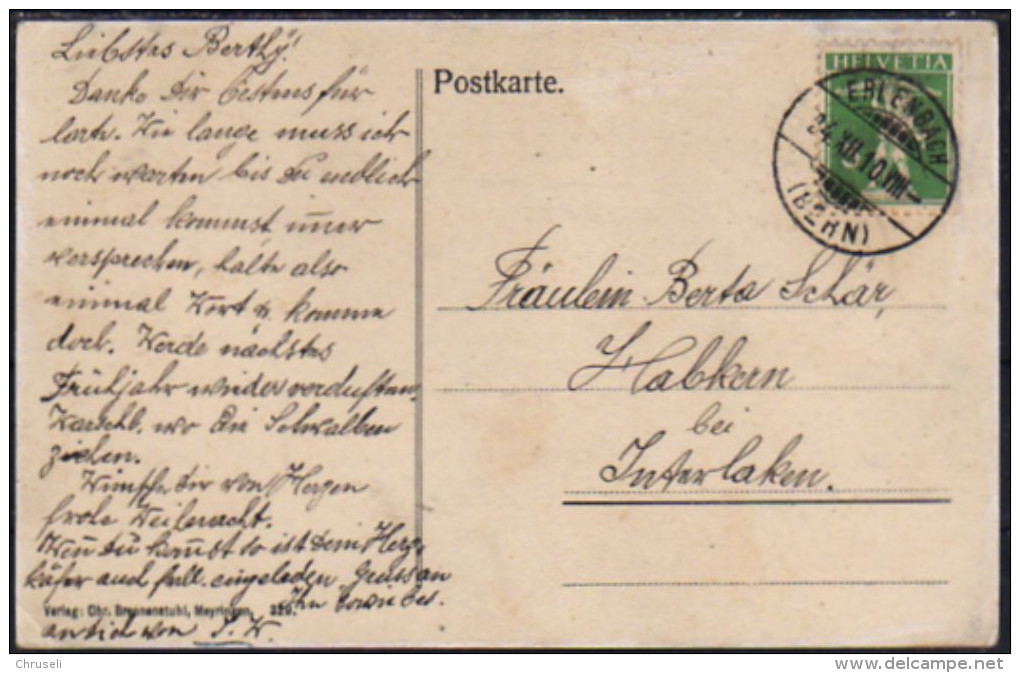 Liebstes Berthÿ!
Danke Dir bestens für
Karte. Wie lange muss ich
noch warten bis Du endlich
einmal kommst im̅er
versprechen, halte also
einmal Wort u. komme
doch. Werde nächstes
Frühjahr wieder verduften,
wo die Schwalben
ziehen.
Wünsche dir von Herzen
frohe Weihnacht.
Wen̅ Du kom̅st so ist Dein Herz-
käfer auch fall. eingeladen Gruss an
Ihn sowie bes.
an dich von S. W.
Verlag: Chr. Brennenstuhl, Meyringen. 329.
Postkarte.
HELVETIA
ERLENBACH
24. XII. 10. VIII
(BERN)
Fräulein Berta Schär,
Habkern
bei
Interlaken.
Chruseli
delcampe.net